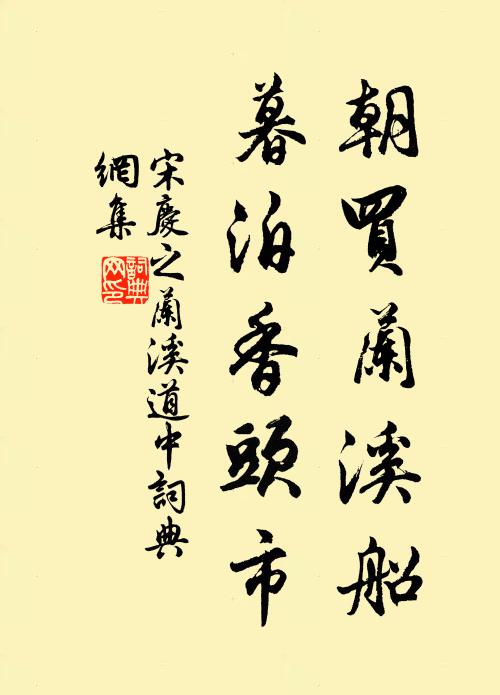 朝買蘭溪船
暮泊香頭市
宋慶之蘭溪道中詞典
網集
詞典網印